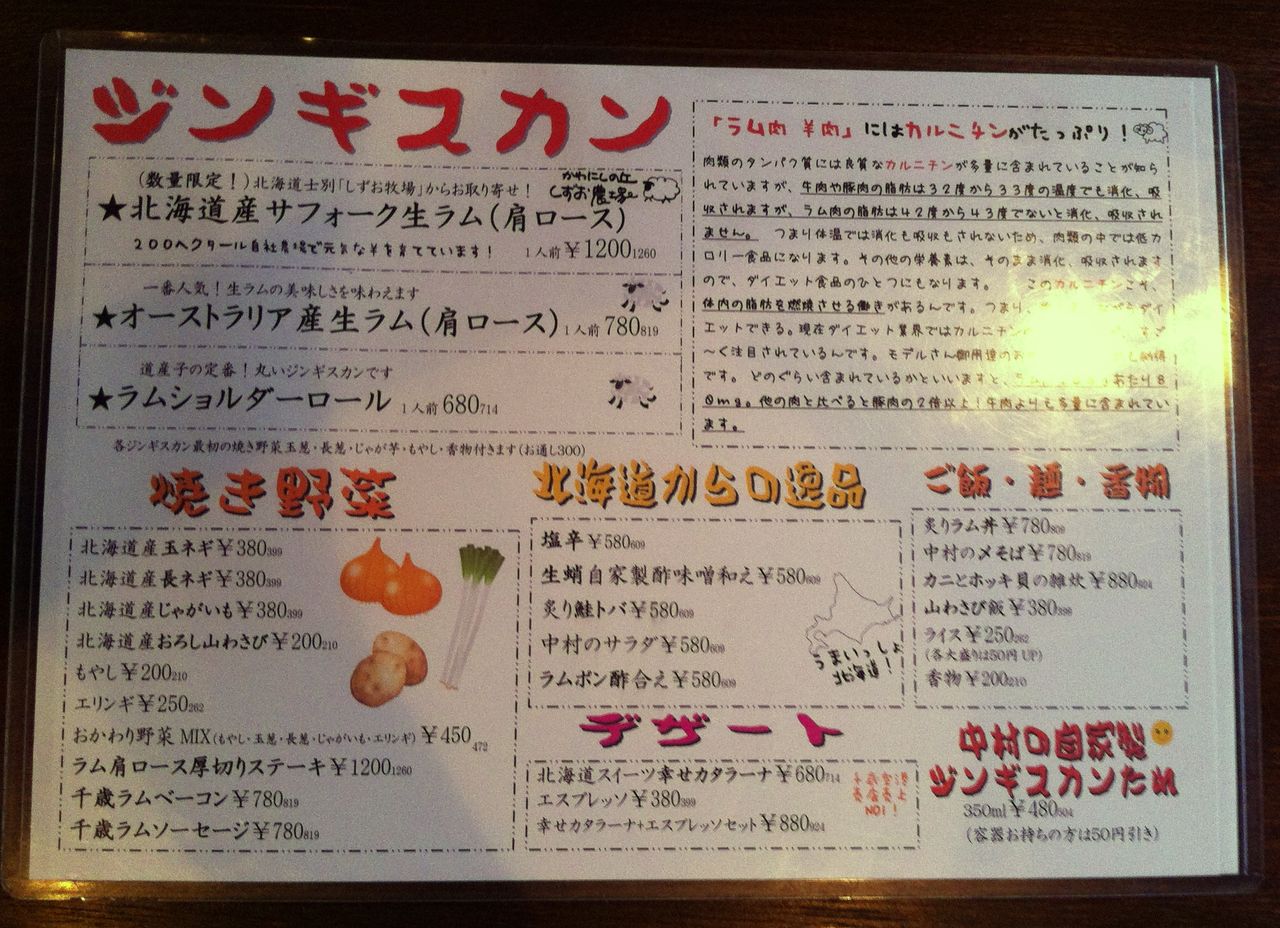 ジンギスカン
(数量限定!)北海道士別「しずお牧場」からお取り寄せ!
かわにしの丘
しずお農場
★北海道産サフォーク生ラム(肩ロース)
200ヘクタール自社農場で元気な羊を育てています! 1人前¥1200 1260
一番人気!生ラムの美味しさを味わえます
★オーストラリア産生ラム(肩ロース)1人前 780 819
道産子の定番!丸いジンギスカンです
★ラムショルダーロール 1人前 680 714
各ジンギスカン最初の焼き野菜玉葱・長葱・じゃが芋・もやし・香物付きます(お通し300)
「ラム肉 羊肉」にはカルニチンがたっぷり!
肉類のタンパク質には良質なカルニチンが多量に含まれていることが知
られていますが、牛肉や豚肉の脂肪は32度から33度の温度でも消化、吸
収されますが、ラム肉の脂肪は42度から43度でないと消化、吸収され
ません。 つまり体温では消化も吸収もされないため、肉類の中では低カ
ロリー食品になります。その他の栄養素は、そのまま消化、吸収されます
ので、ダイエット食品のひとつにもなります。 このカルニチンこそ、
体内の脂肪を燃焼させる働きがあるんです。つまり、 ダイ
エットできる。現在ダイエット業界ではカルニチン
〜く注目されているんです。モデルさん御用達のお 納得
です。どのぐらい含まれているかといいますと、 あたり8
0mg。他の肉と比べると豚肉の2倍以上!牛肉よりも多量に含まれてい
ます。
焼き野菜
北海道産玉ネギ¥380 399
北海道産長ネギ¥380 399
北海道産じゃがいも¥380 399
北海道産おろし山わさび¥200 210
もやし¥200 210
エリンギ¥250 262
おかわり野菜 MIX(もやし・玉葱・長葱・じゃがいも・エリンギ)¥450 472
ラム肩ロース厚切りステーキ¥1200 1260
千歳ラムベーコン¥780 819
千歳ラムソーセージ¥780 819
北海道からの逸品
塩辛¥580 609
生蛸自家製酢味噌和え¥580 609
炙り鮭トバ¥580 609
中村のサラダ¥580 609
ラムポン酢合え¥580 609
うまいっしょ
北海道!
デザート
北海道スイーツ幸せカタラーナ¥680 714
エスプレッソ¥380 399
幸せカタラーナ+エスプレッソセット¥880 924
NO1!
ご飯・麺・香物
炙りラム丼¥780 809
中村の〆そば¥780 819
カニとホッキ貝の雑炊¥880 924
山わさび飯¥380 399
ライス¥250 262
(各大盛りは50円 UP)
香物¥200 210
中村の自家製
ジンギスカンたれ
350ml¥480 504
(容器お持ちの方は50円引き)